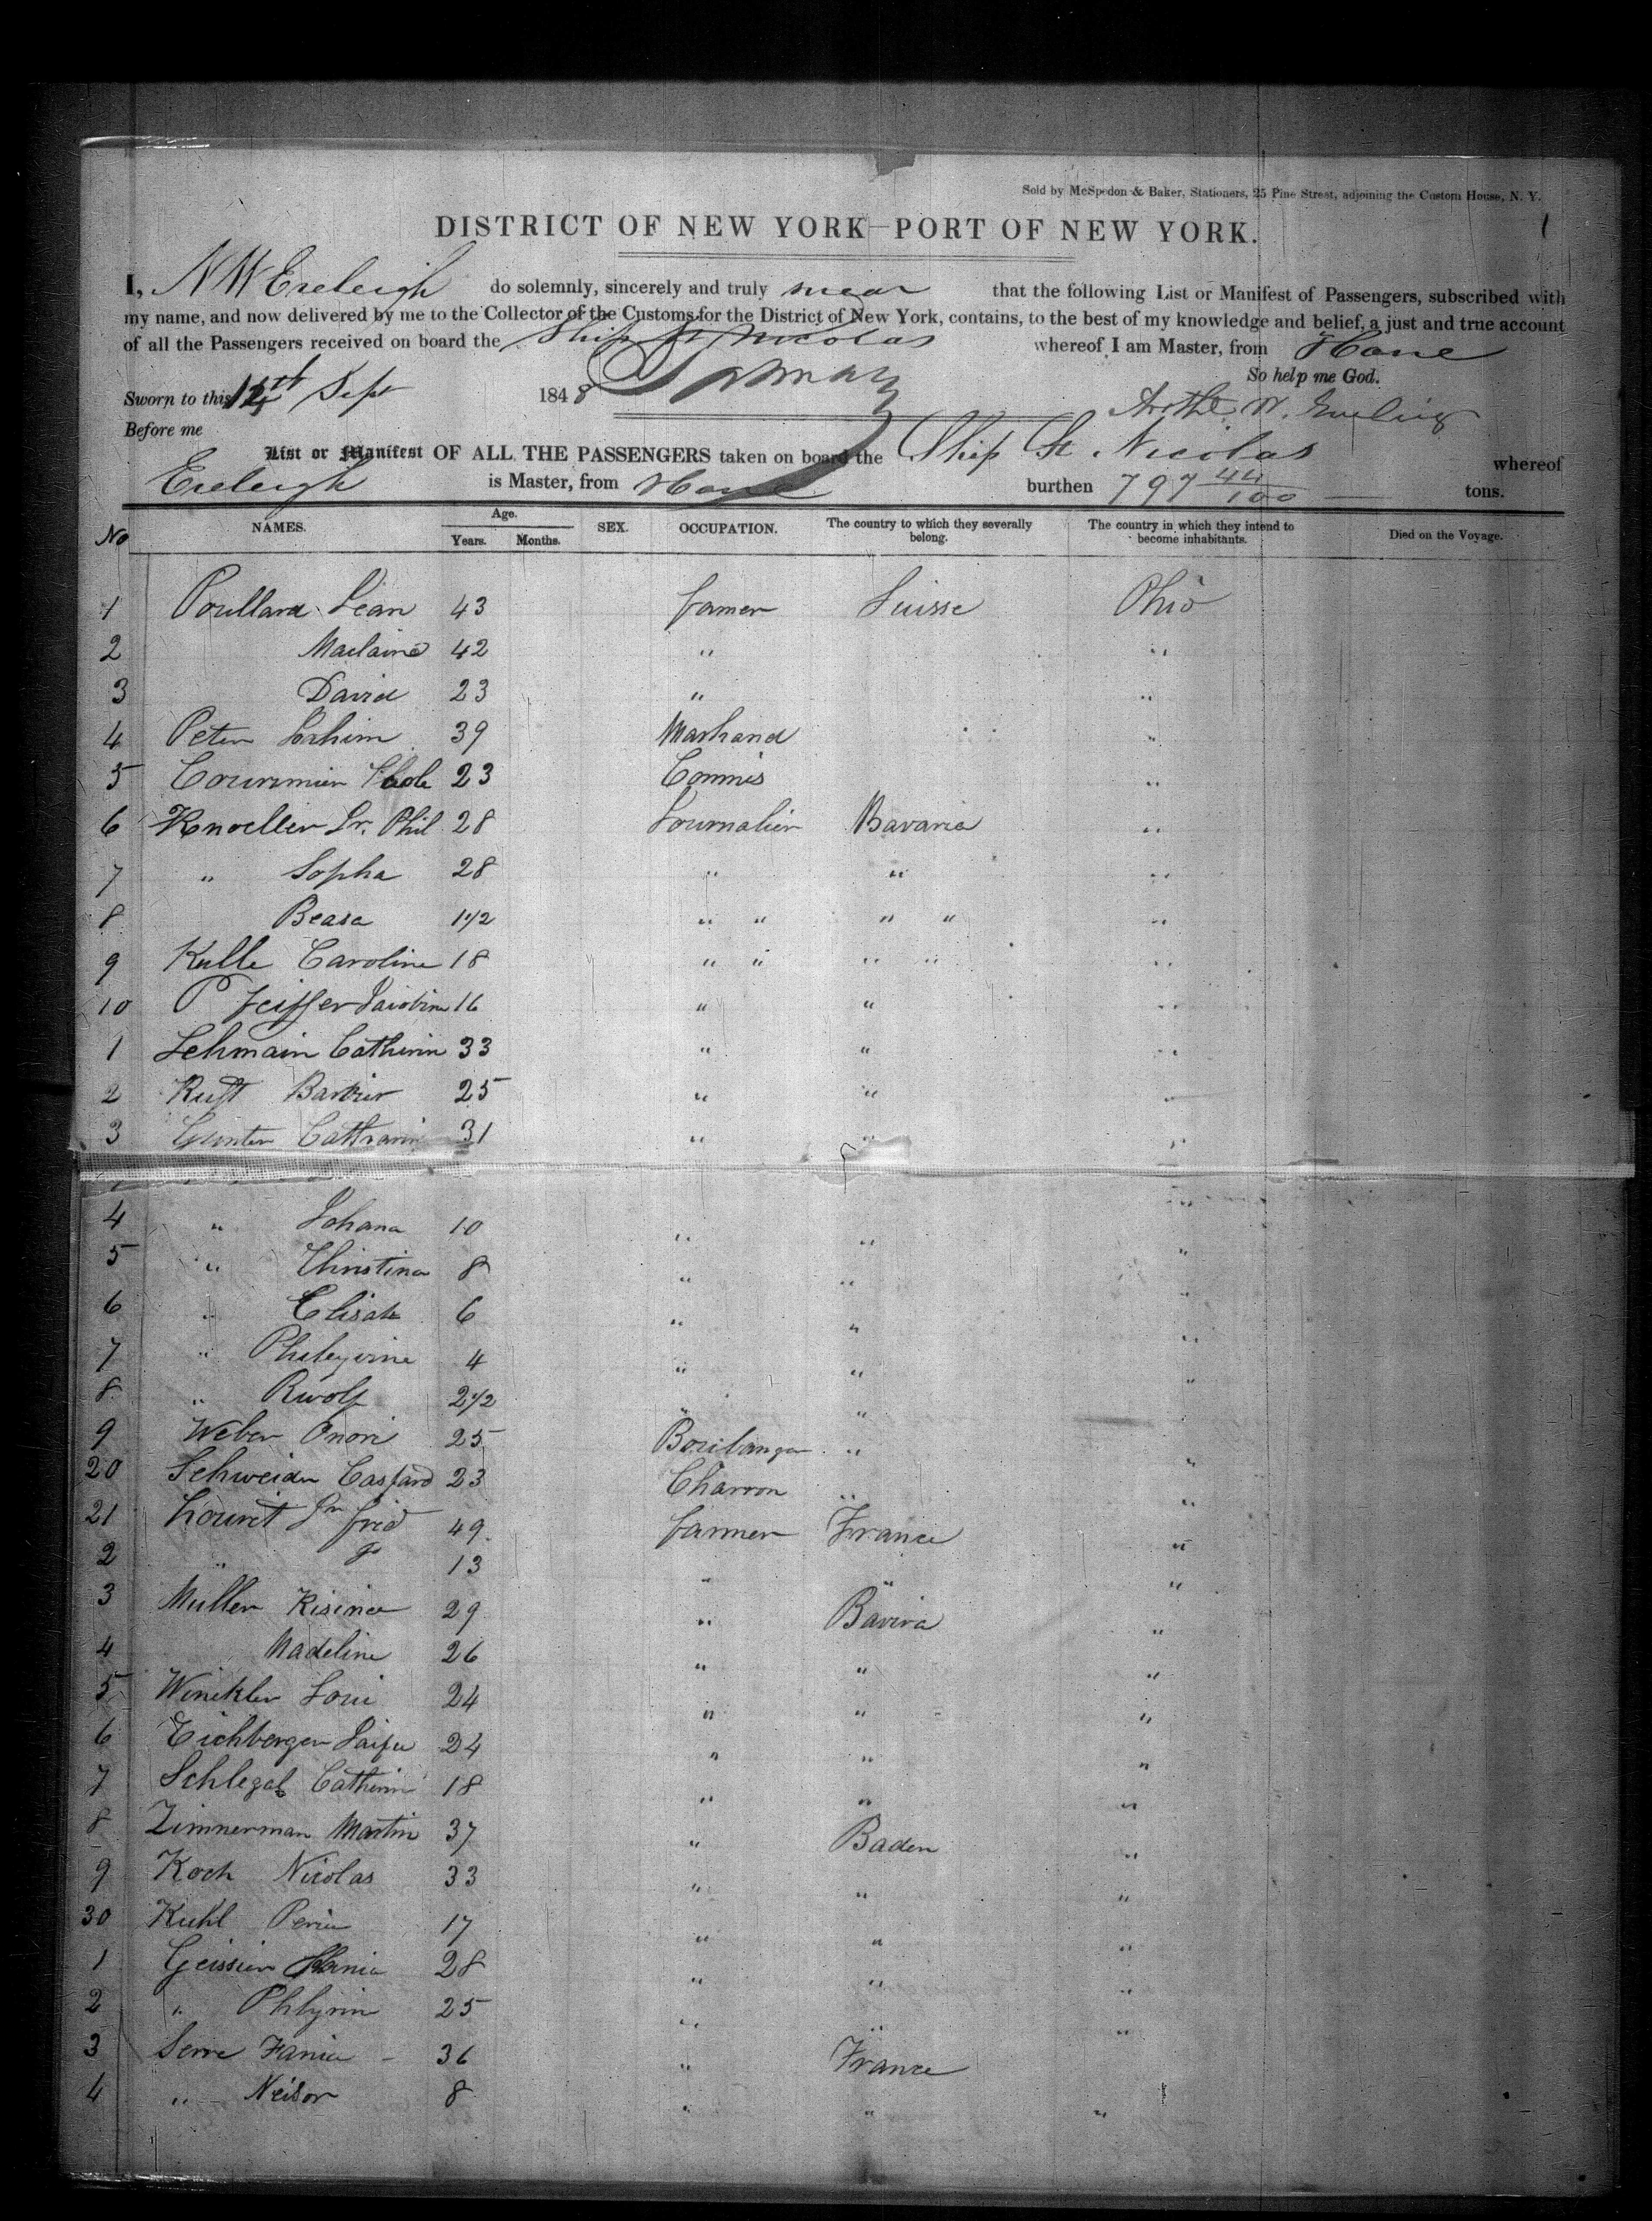 Sold by McSpedon & Baker, Stationers, 25 Pine Street, adjoining the Custom House, N. Y.
1
DISTRICT OF NEW YORK—PORT OF NEW YORK.
I, N W Eveleigh do solemnly, sincerely and truly swear that the following List or Manifest of Passengers, subscribed with
my name, and now delivered by me to the Collector of the Customs for the District of New York, contains, to the best of my knowledge and belief, a just and true account
of all the Passengers received on board the Ship St Nicolas whereof I am Master, from Havre
So help me God.
Sworn to this 12th Sept 1848
Before me
List or Manifest OF ALL THE PASSENGERS taken on board the Ship St Nicolas whereof
Eveleigh is Master, from Havre burthen 797 44/100 tons.
No NAMES. Age. Years. Months. SEX. OCCUPATION. The country to which they severally belong. The country in which they intend to become inhabitants. Died on the Voyage.
1 Jean 43 farmer Suisse Ohio
2 42 " "
3 David 23 " "
4 Peter 39 Marhand "
5 23 Commis "
6 Knoeller Phil 28 Journalier Bavaria "
7 " Sopha 28 " " "
8 1 1/2 " " " " "
9 Kulle Caroline 18 " " " " "
10 Pfeiffer Jacobine 16 " " "
1 Lehmain Catherin 33 " " "
2 Rust 25 " " "
3 Gunter Catharin 31 " " "
4 " Johana 10 " " "
5 " Christina 8 " " "
6 " Elisab 6 " " "
7 " 4 " " "
8 " Rwolf 2 1/2 " " "
9 Weber Onori 25 Boulanger " "
20 Schweider Caspard 23 Charron " "
21 Louvet Jn fred 49 farmer France "
2 " 13 " " "
3 Muller 29 " Bavira "
4 Madeline 26 " " "
5 Winckler Loui 24 " " "
6 Eichberger 24 " " "
7 Schlegal Catherin 18 " " "
8 Zimnerman Martin 37 " Baden "
9 Koch Nicolas 33 " " "
30 Kuhl 17 " " "
1 Geissier 28 " " "
2 " 25 " " "
3 Serre Fanie - 36 " France
4 " Neisor 8 " " "